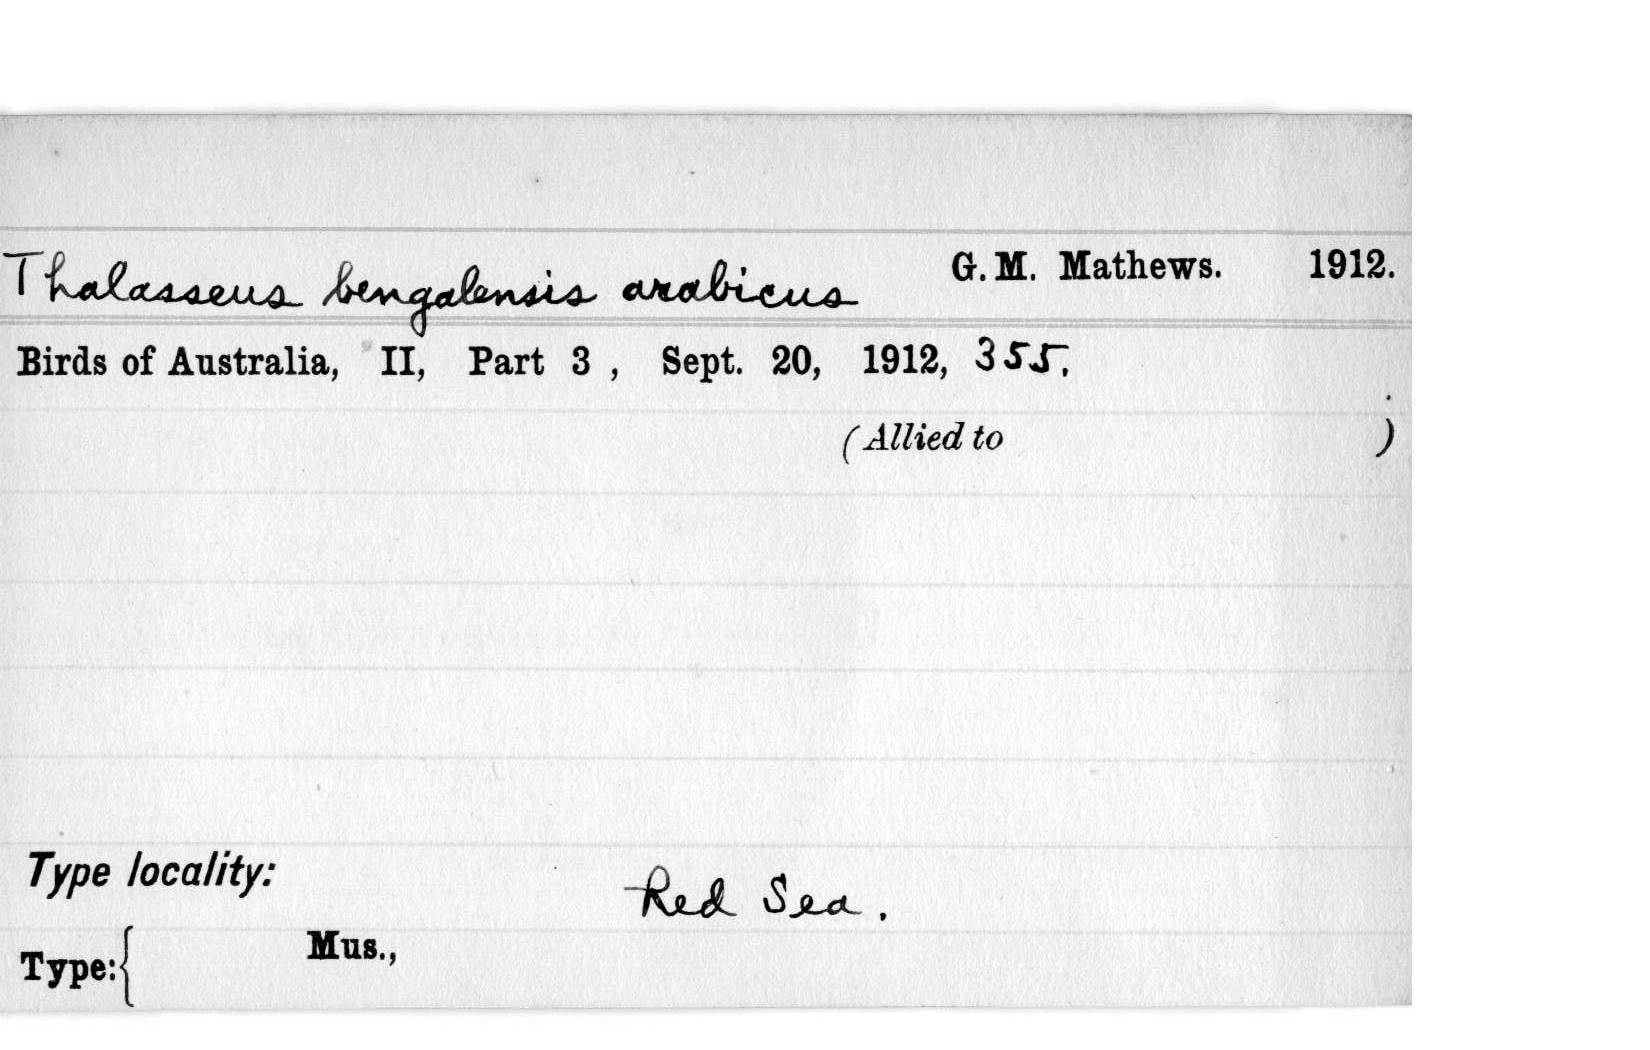 Thalasseus bengalensis arabicus G. M. Mathews. 1912.
Birds of Australia, II, Part 3 , Sept. 20, 1912, 355.
(Allied to )
Type locality: Red Sea.
Type:{ Mus.,